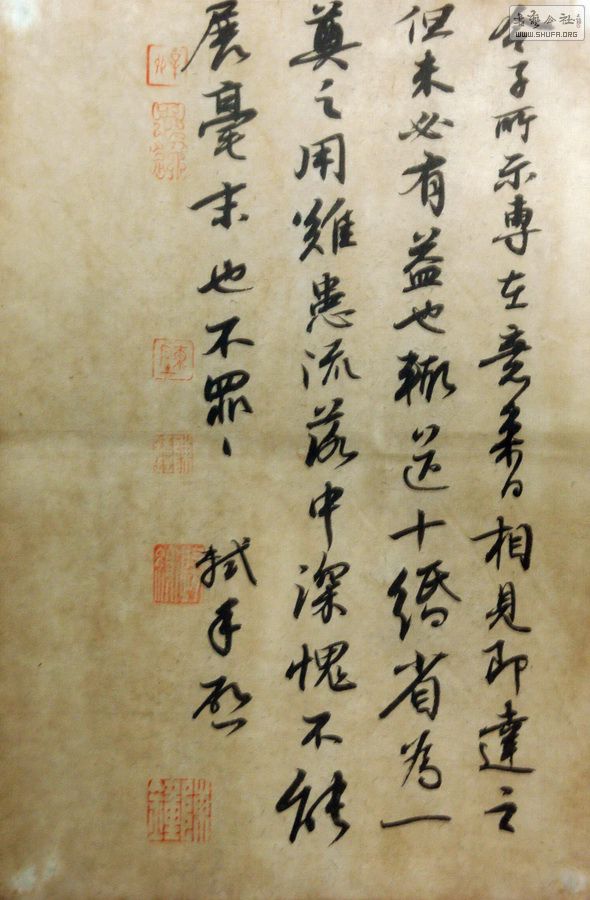 令子所示專在意來日相見即達之
但未必有益也輒送十緡省為一
奠之用難患流落中深愧不能
展毫末也不罪〻 軾手啟
書藝公社
WWW.SHUFA.ORG